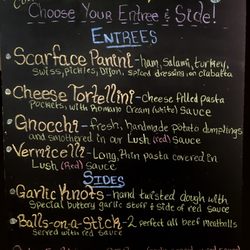 Choose Your Entree & Side!
ENTREES
Scarface Panini - ham, salami, turkey,
swiss, pickles, Dijon, spiced dressing, on ciabatta
Cheese Tortellini - Cheese filled pasta
pockets, with Romano Cream (white) sauce
Gnocchi - fresh, handmade potato dumplings
and smothered in our Lush (red) sauce
Vermicelli - Long, thin pasta covered in
Lush (Red) sauce
SIDES
Garlic Knots - hand twisted dough with
Special buttery garlic stuff & side of red sauce
Balls-on-a-Stick - 2 perfect all beef meatballs
served with red sauce